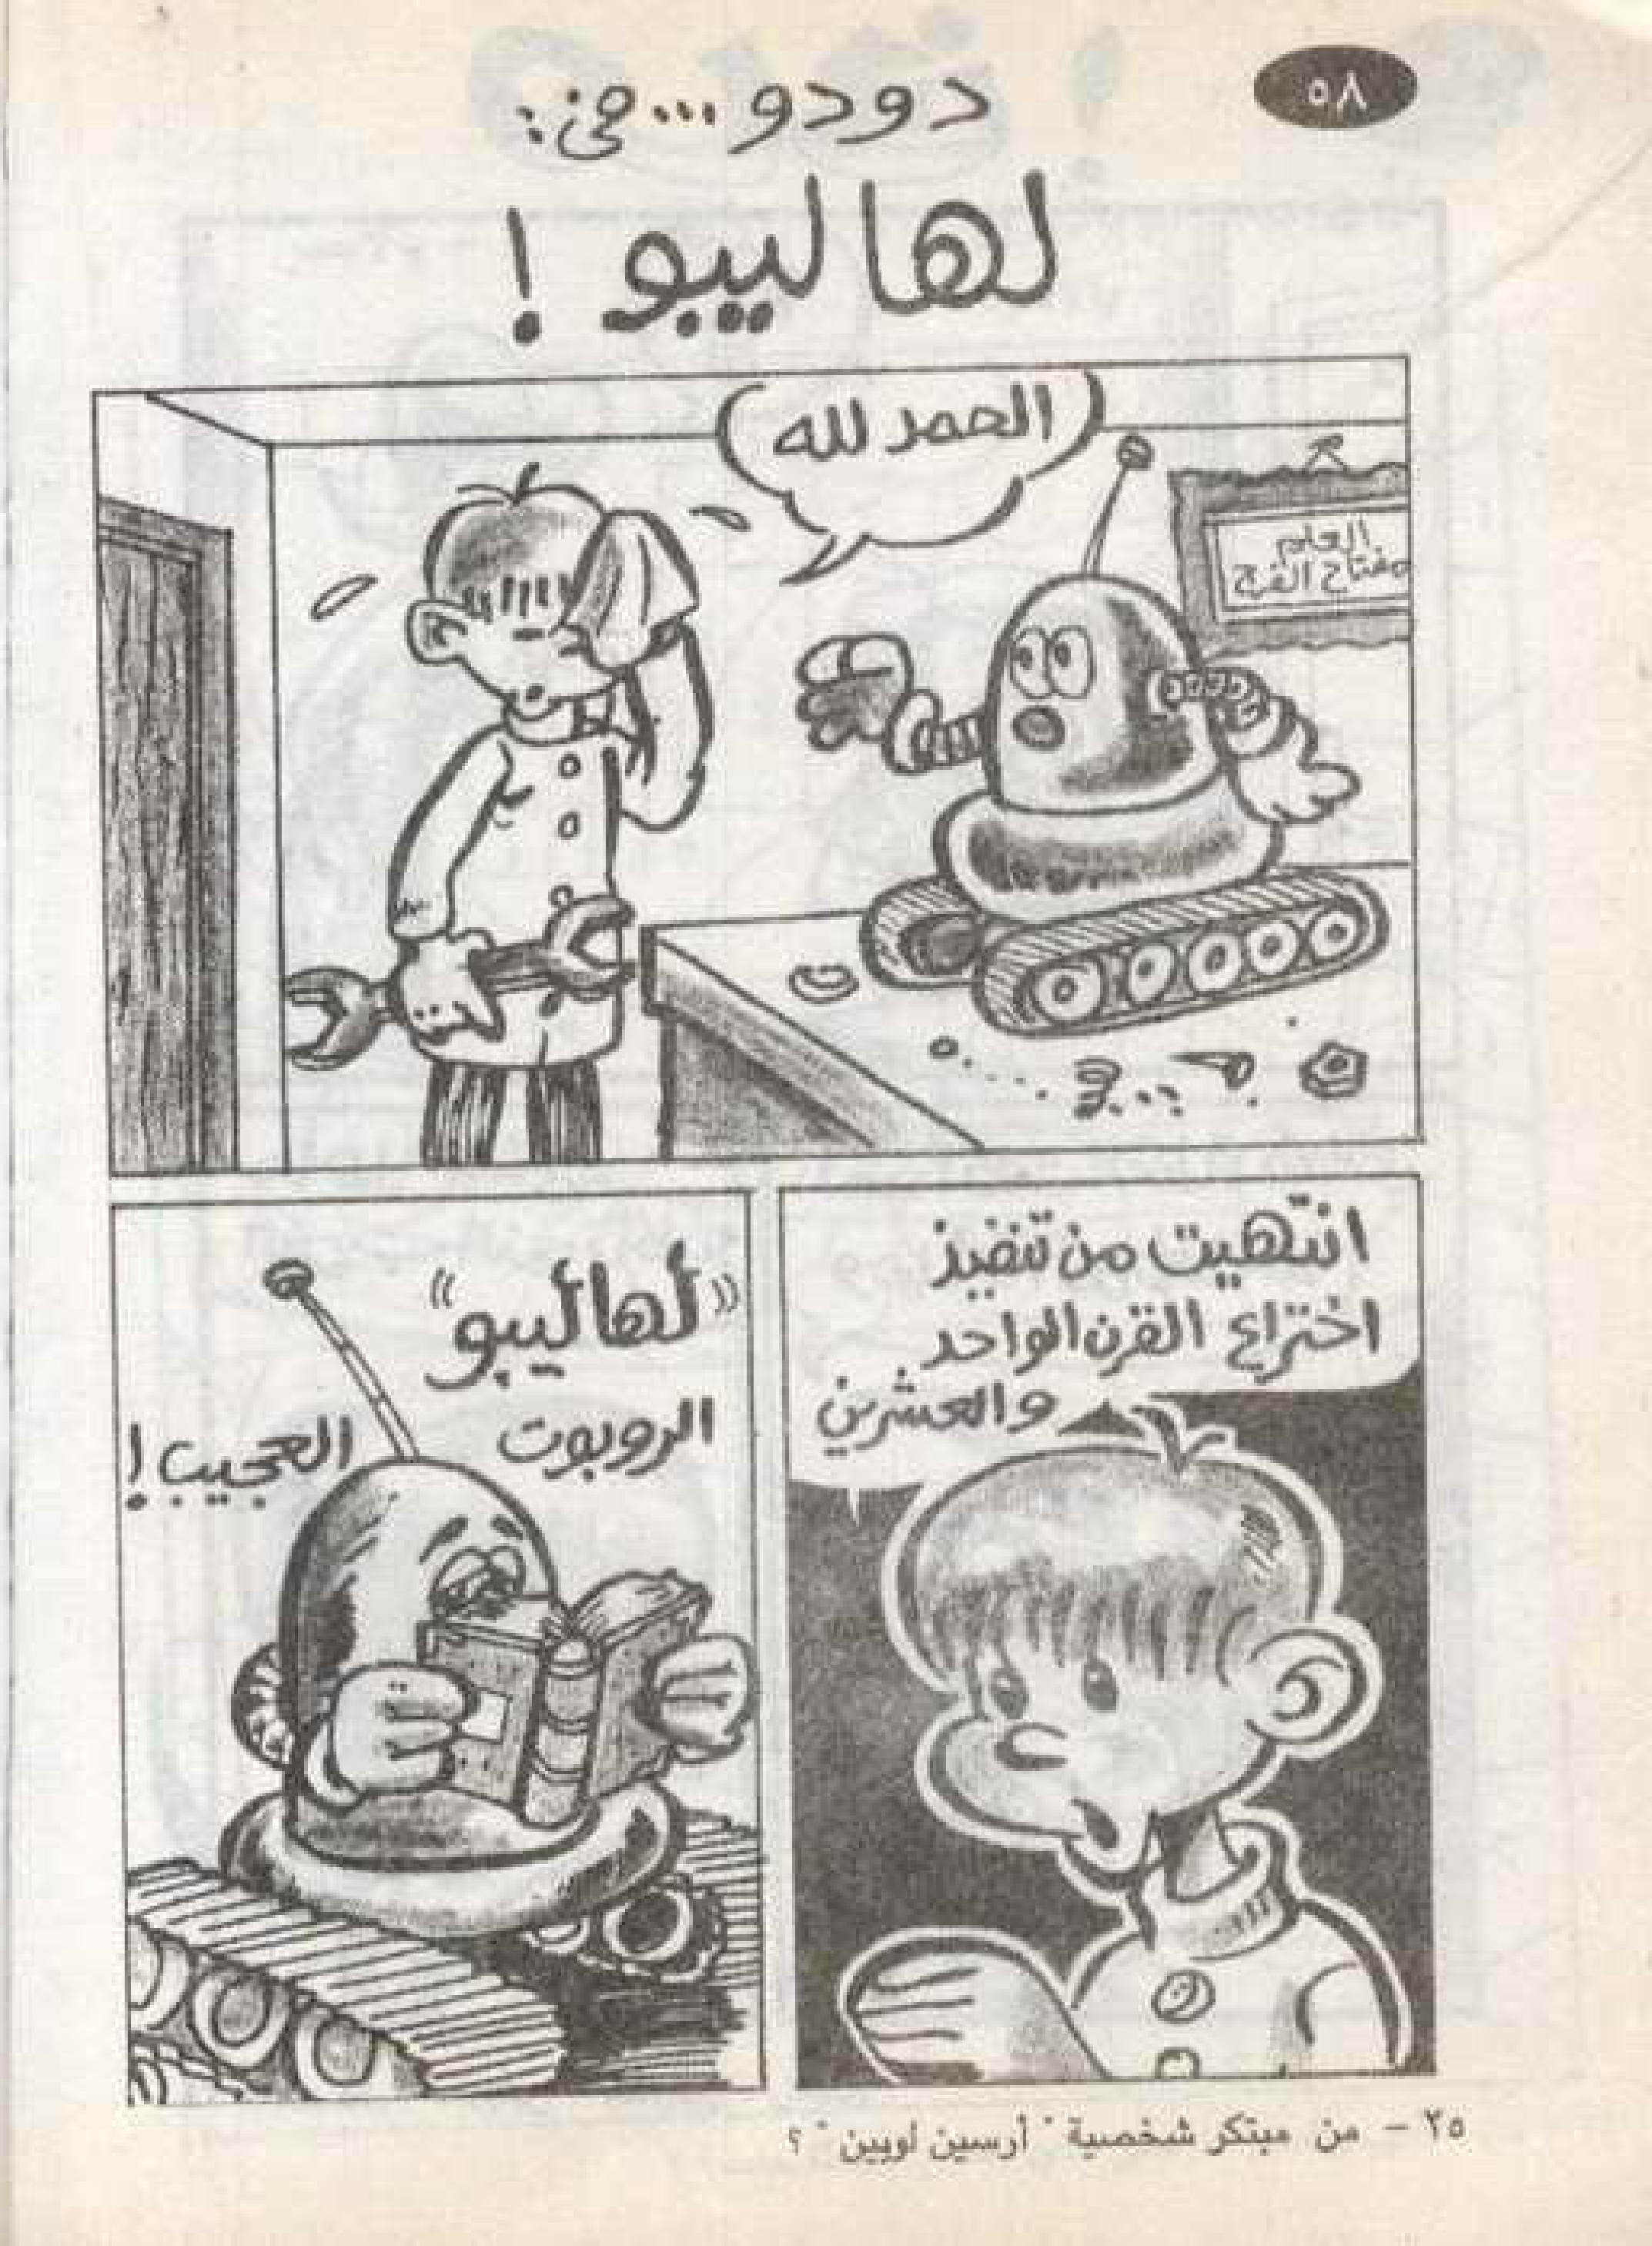 ٥٨
دودو... في:
لهاليبو !
الحمد لله
العلم
مفتاح الفرج
انتهيت من تنفيذ
اختراع القرن الواحد
والعشرين
«لهاليبو»
الروبوت
العجيب !
٢٥ – من مبتكر شخصية " أرسين لوبين " ؟